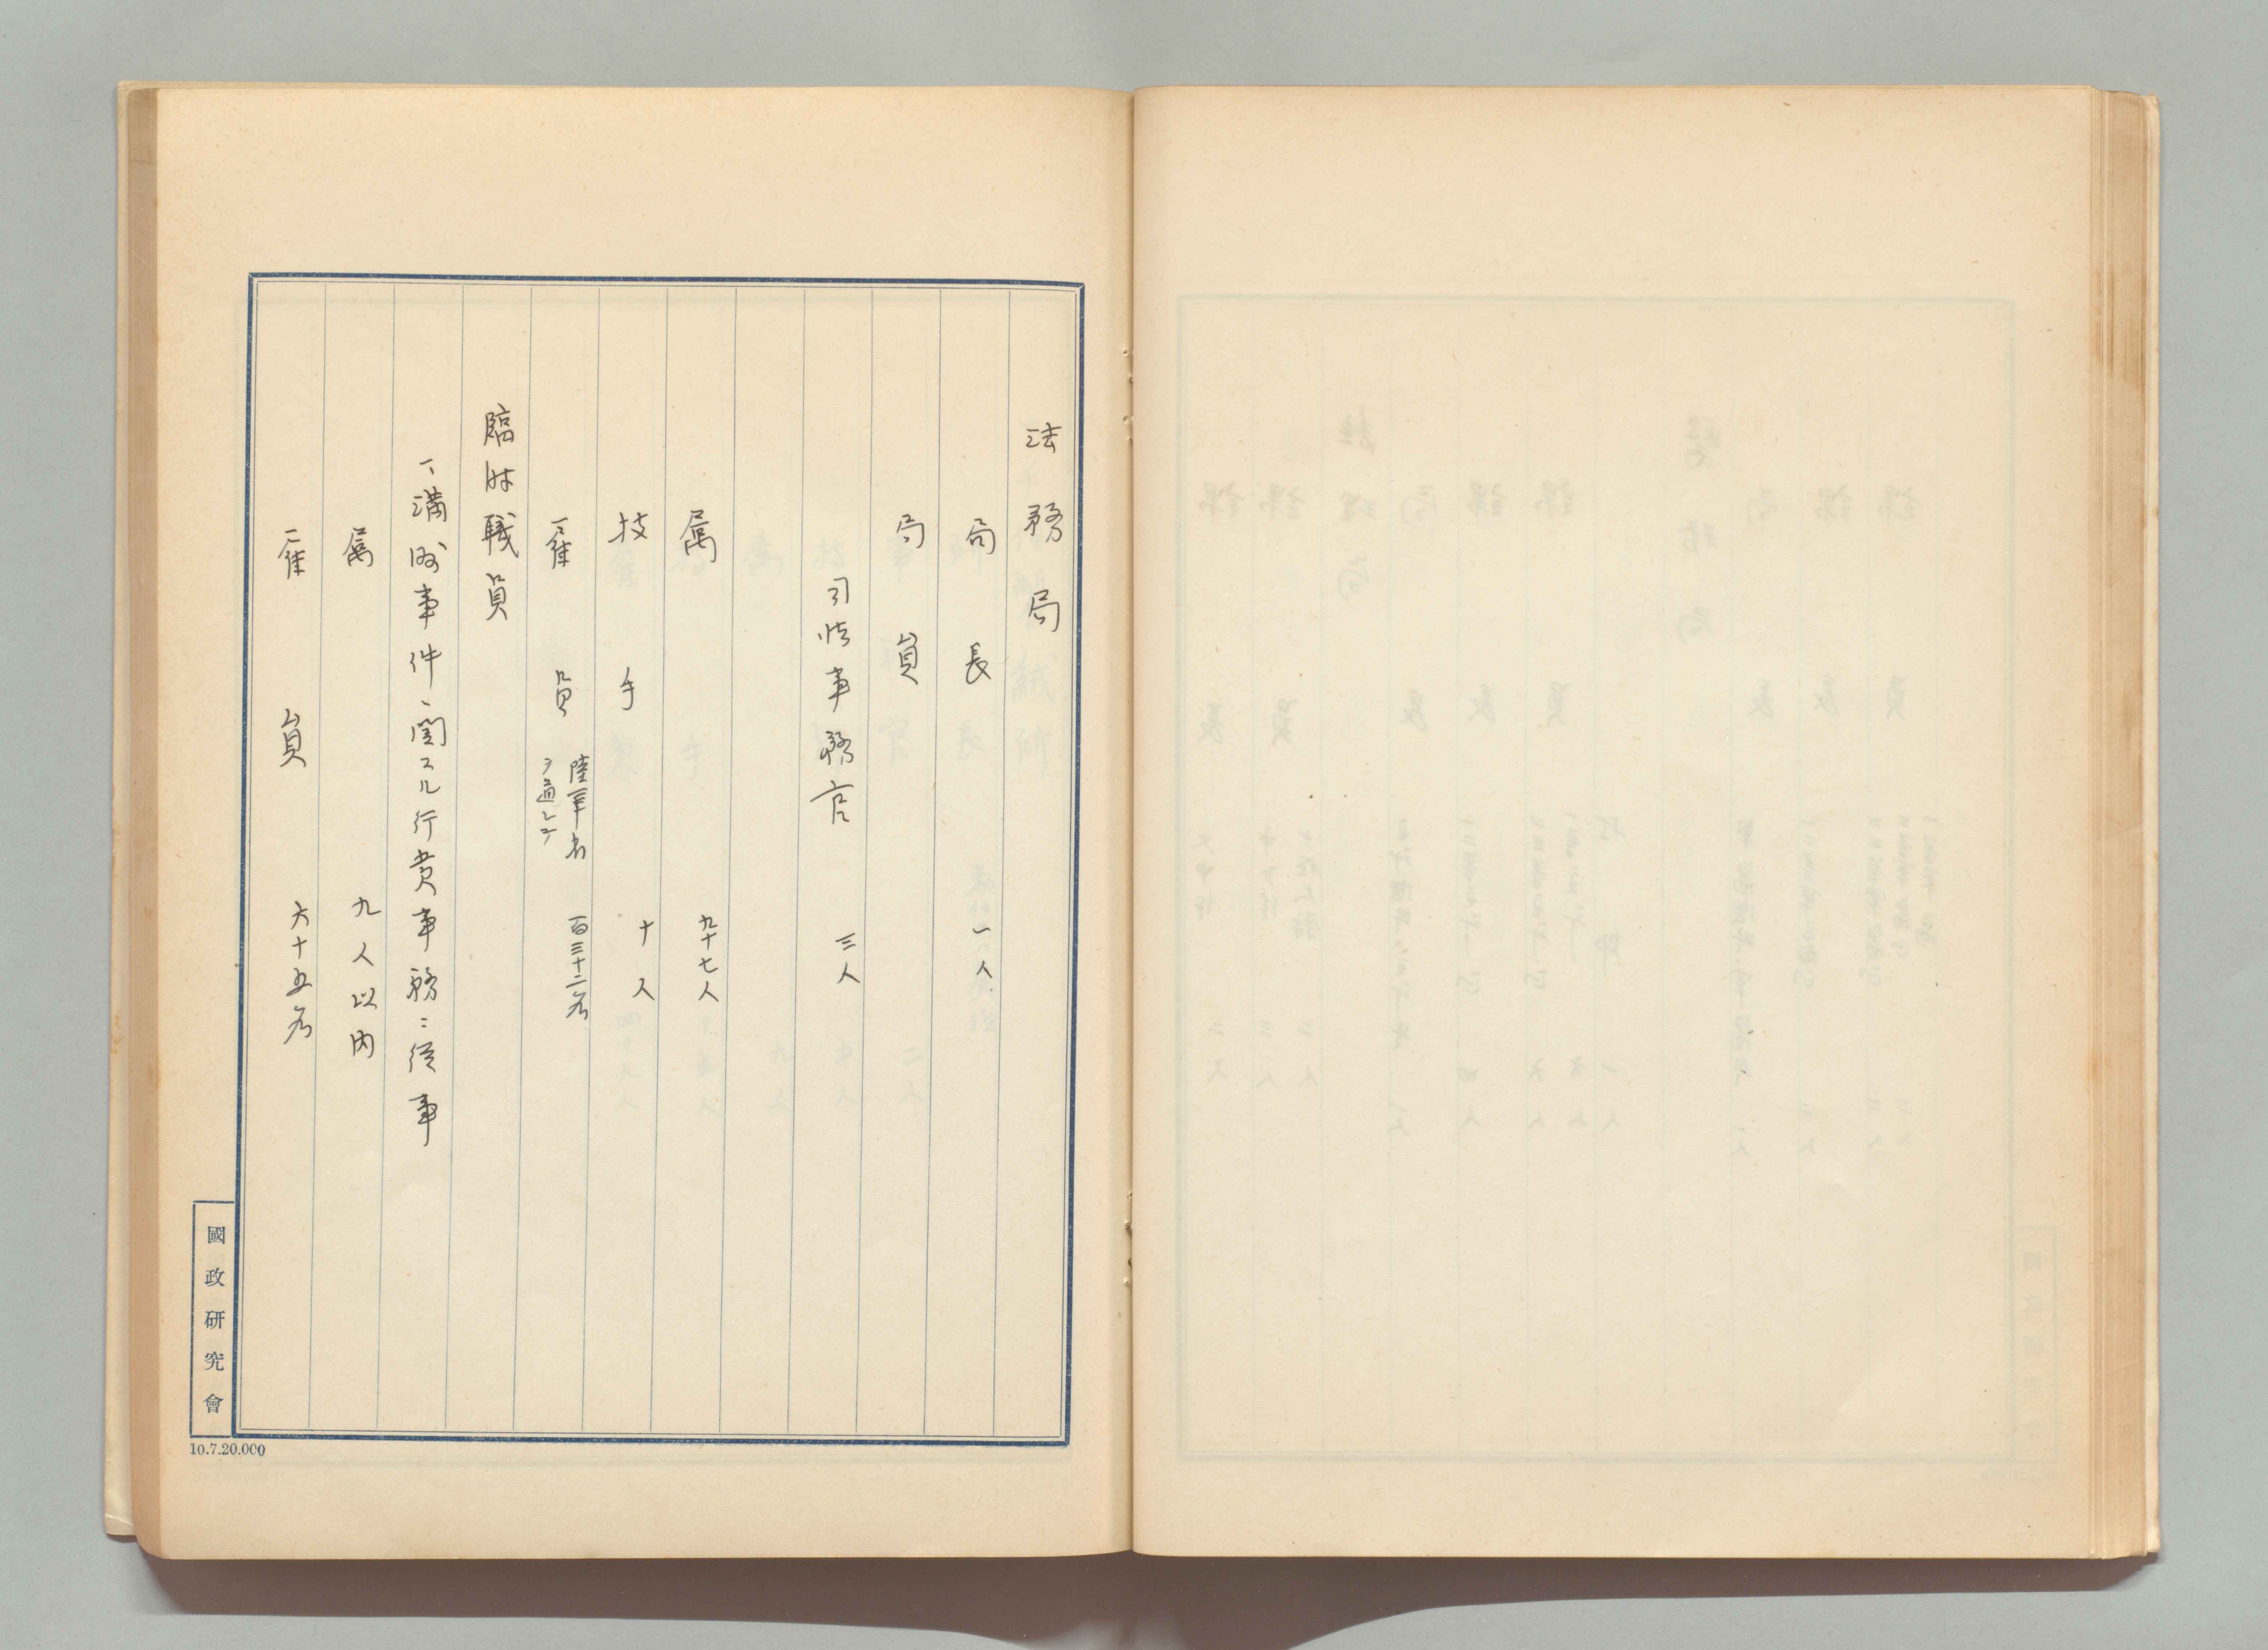 法務局
局長 一人
局員
司法事務官 三人
属 九十七人
技手 十人
雇員 陸軍省ヲ通シテ 百三十二名
臨時職員
一、満洲事件ニ関スル行賞事務ニ従事
属 九人以内
雇員 六十五名
國政研究會
10.7.20.000